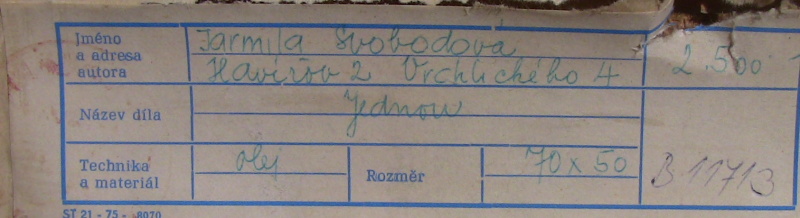 Jméno
a adresa
autora
Jarmila Svobodová
Havířov 2 Vrchlického 4
2.500
Název díla
Jednou
Technika
a materiál
olej
Rozměr
70 x 50
B 11713
ST 21 - 75 - 8070